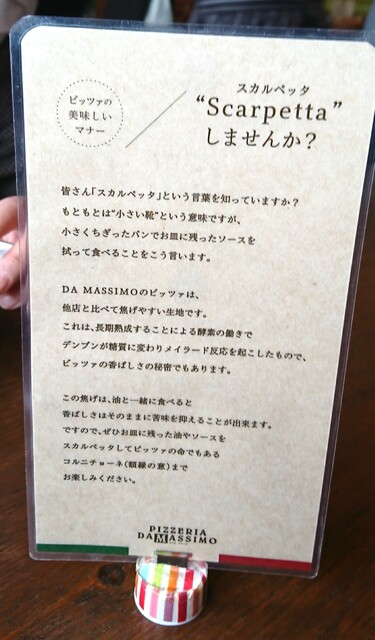 ピッツァの
美味しい
マナー
スカルペッタ
“Scarpetta”
しませんか？
皆さん「スカルペッタ」という言葉を知っていますか？
もともとは“小さい靴”という意味ですが、
小さくちぎったパンでお皿に残ったソースを
拭って食べることをこう言います。
DA MASSIMOのピッツァは、
他店と比べて焦げやすい生地です。
これは、長期熟成することによる酵素の働きで
デンプンが糖質に変わりメイラード反応を起こしたもので、
ピッツァの香ばしさの秘密でもあります。
この焦げは、油と一緒に食べると
香ばしさはそのままに苦味を抑えることが出来ます。
ですので、ぜひお皿に残った油やソースを
スカルペッタしてピッツァの命でもある
コルニチョーネ（額縁の意）まで
お楽しみください。
PIZZERIA
DA MASSIMO